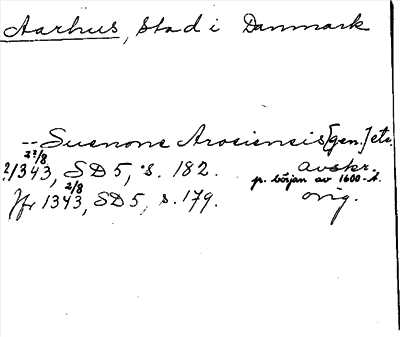 Aarhus, Stad i Danmark
-- Suenone Arosiensis [gen.] etc.
22/8
?1343, SD 5, s. 182. avskr.
p. början av 1600-t.
2/8
Jfr 1343, SD 5, s. 179. orig.